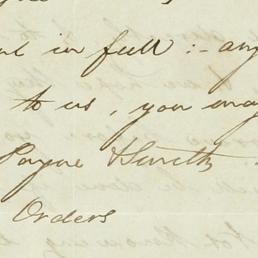 in full :- any
to us, you may
Payne & Smith
Orders